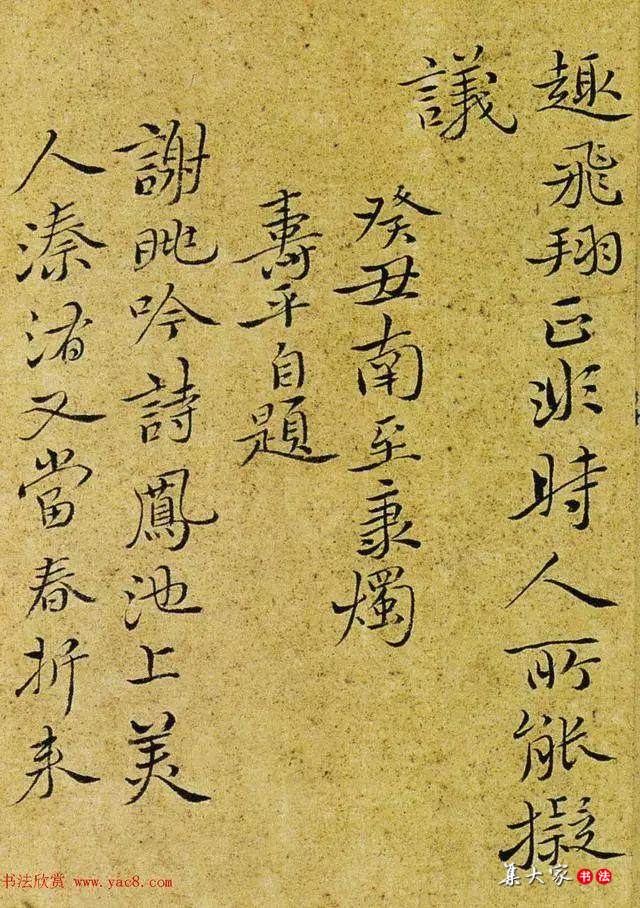 趣飛翔正非時人所能擬
議
癸丑南至秉燭
壽平自題
謝眺吟詩鳳池上美
人溱洧又當春折来
书法欣赏 www.yac8.com
集大家 书法